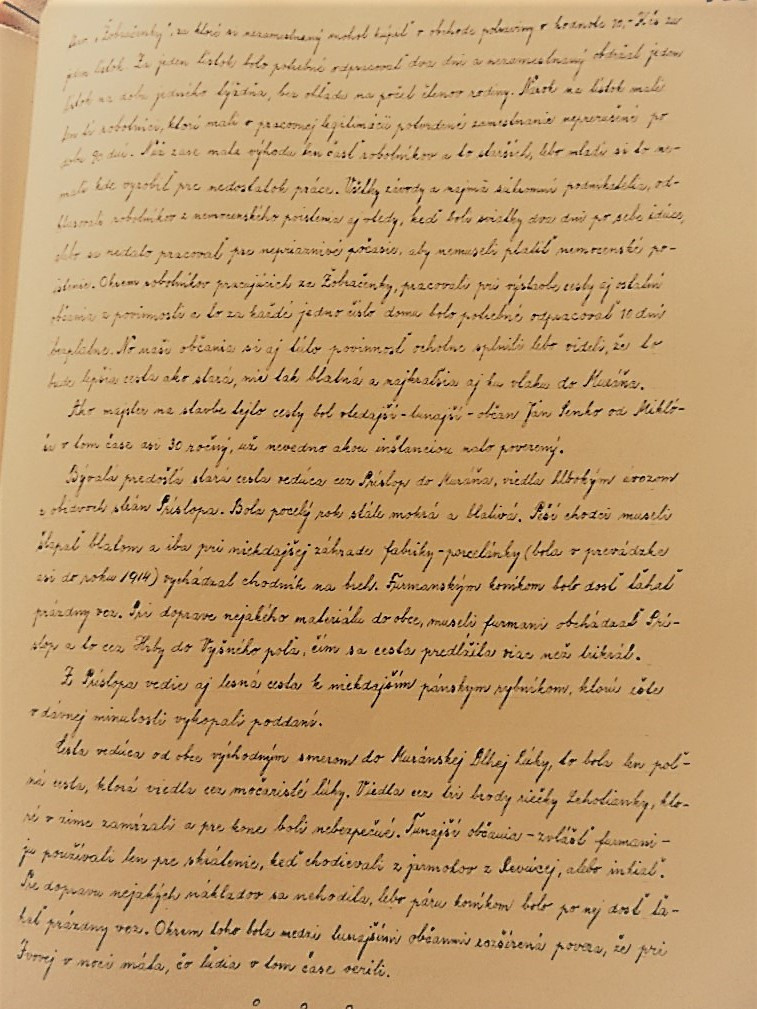 „Žobračenky", za ktoré si nezamestnaný mohol kúpiť v obchode potraviny v hodnote 10,- Kčs za
jeden lístok. Za jeden lístok bolo potrebné odpracovať dva dni a nezamestnaný obdržal jeden
lístok na dobu jedného týždňa, bez ohľadu na počet členov rodiny. Nárok na lístok mali
len tí robotníci, ktorí mali v pracovnej legitimácii potvrdené zamestnanie neprerušené po
dobu 90 dní. No zase mala výhodu len časť robotníkov a to starších, lebo mladí si to ne-
mali kde vyrobiť pre nedostatok práce. Všetky závody a najmä súkromní podnikatelia, od-
hlasovali robotníkov z nemocenského poistenia aj vtedy, keď boli sviatky dva dni po sebe idúce,
alebo sa nedalo pracovať pre nepriaznivé počasie, aby nemuseli platiť nemocenské po-
istenie. Okrem robotníkov pracujúcich za Žobračenky, pracovali pri výstavbe cesty aj ostatní
občania z povinnosti a to za každé jedno číslo domu bolo potrebné odpracovať 10 dní
bezplatne. No naši občania si aj túto povinnosť ochotne splnili lebo videli, že to
bude lepšia cesta ako stará, nie tak blatná a najkratšia aj ku vlaku do Muráňa.
Ako majster na stavbe tejto cesty bol vtedajší - tunajší - občan Ján Senko od Mikló-
ša v tom čase asi 30 ročný, už nevedno akou inštanciou nato poverený.
Bývalá predošlá stará cesta vedúca cez Príslop do Muráňa, viedla hlbokým úvozom
z obidvoch strán Príslopa. Bola pocelý rok stále mokrá a blativá. Peší chodci museli
šľapať blatom a iba pri niekdajšej záhrade fabriky-porcelánky (bola v prevádzke
asi do roku 1914) vychádzal chodník na breh. Furmanským koníkom bolo dosť ťahať
prázdny voz. Pri doprave nejakého materiálu do obce, museli furmani obchádzať Prí-
slop a to cez Hrby do Vyšného poľa, čím sa cesta predlžila viac než trikrát.
Z Príslopa vedie aj lesná cesta k niekdajším pánskym rybníkom, ktorú ešte
v dávnej minulosti vykopali poddaní.
Cesta vedúca od obce východným smerom do Muránskej Dlhej Lúky, to bola len poľ-
ná cesta, ktorá viedla cez močaristé lúky. Viedla cez tri brody riečky Lehotianky, kto-
ré v zime zamŕzali a pre kone boli nebezpečné. Tunajší občania - zvlášť furmani -
ju používali len pre skrátenie, keď chodievali z jarmokov z Revúcej, alebo inkiaľ.
Pre dopravu nejakých nákladov sa nehodila, lebo páru koníkom bolo po nej dosť ťa-
hať prázdny voz. Okrem toho bola medzi tunajšími občanmi rozšírená povera, že pri
Ivovej v noci máta, čo ľudia v tom čase verili.